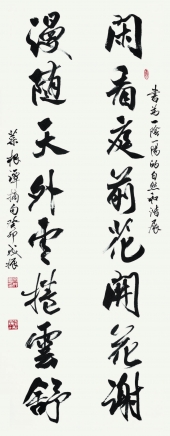 閑看庭前花開花謝
漫随天外云捲雲舒
書为一陰一陽的自然和諧展
菜根譚摘句癸卯成振